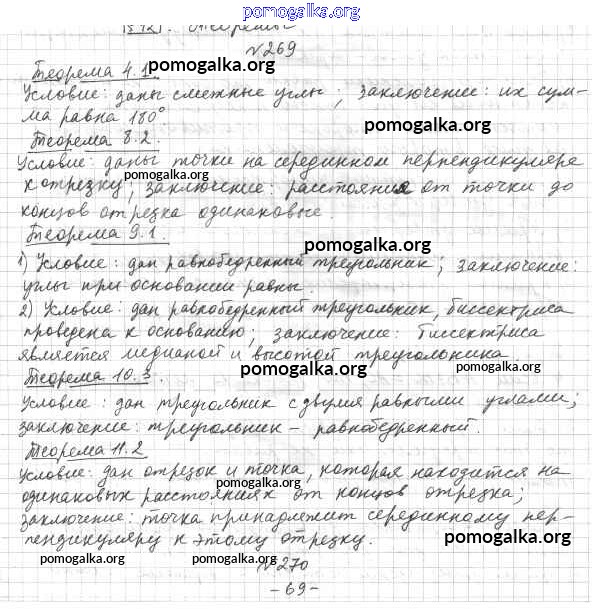 pomogalka.org
§ 12. Теоремы
№269
Теорема 4.1. pomogalka.org
Условие: даны смежные углы; заключение: их сум-
ма равна 180°
pomogalka.org
Теорема 8.2.
Условие: даны точки на серединном перпендикуляре
к отрезку; заключение: расстояния от точки до
концов отрезка одинаковые.
Теорема 9.1.
pomogalka.org
1) Условие: дан равнобедренный треугольник; заключение:
углы при основании равны.
2) Условие: дан равнобедренный треугольник, биссектриса
проведена к основанию; заключение: биссектриса
является медианой и высотой треугольника.
Теорема 10.3. pomogalka.org pomogalka.org
Условие: дан треугольник с двумя равными углами;
заключение: треугольник – равнобедренный.
pomogalka.org
Теорема 11.2
Условие: дан отрезок и точка, которая находится на
одинаковых расстояниях от концов отрезка;
pomogalka.org
заключение: точка принадлежит серединному пер-
пендикуляру к этому отрезку. pomogalka.org
pomogalka.org №270
-69-